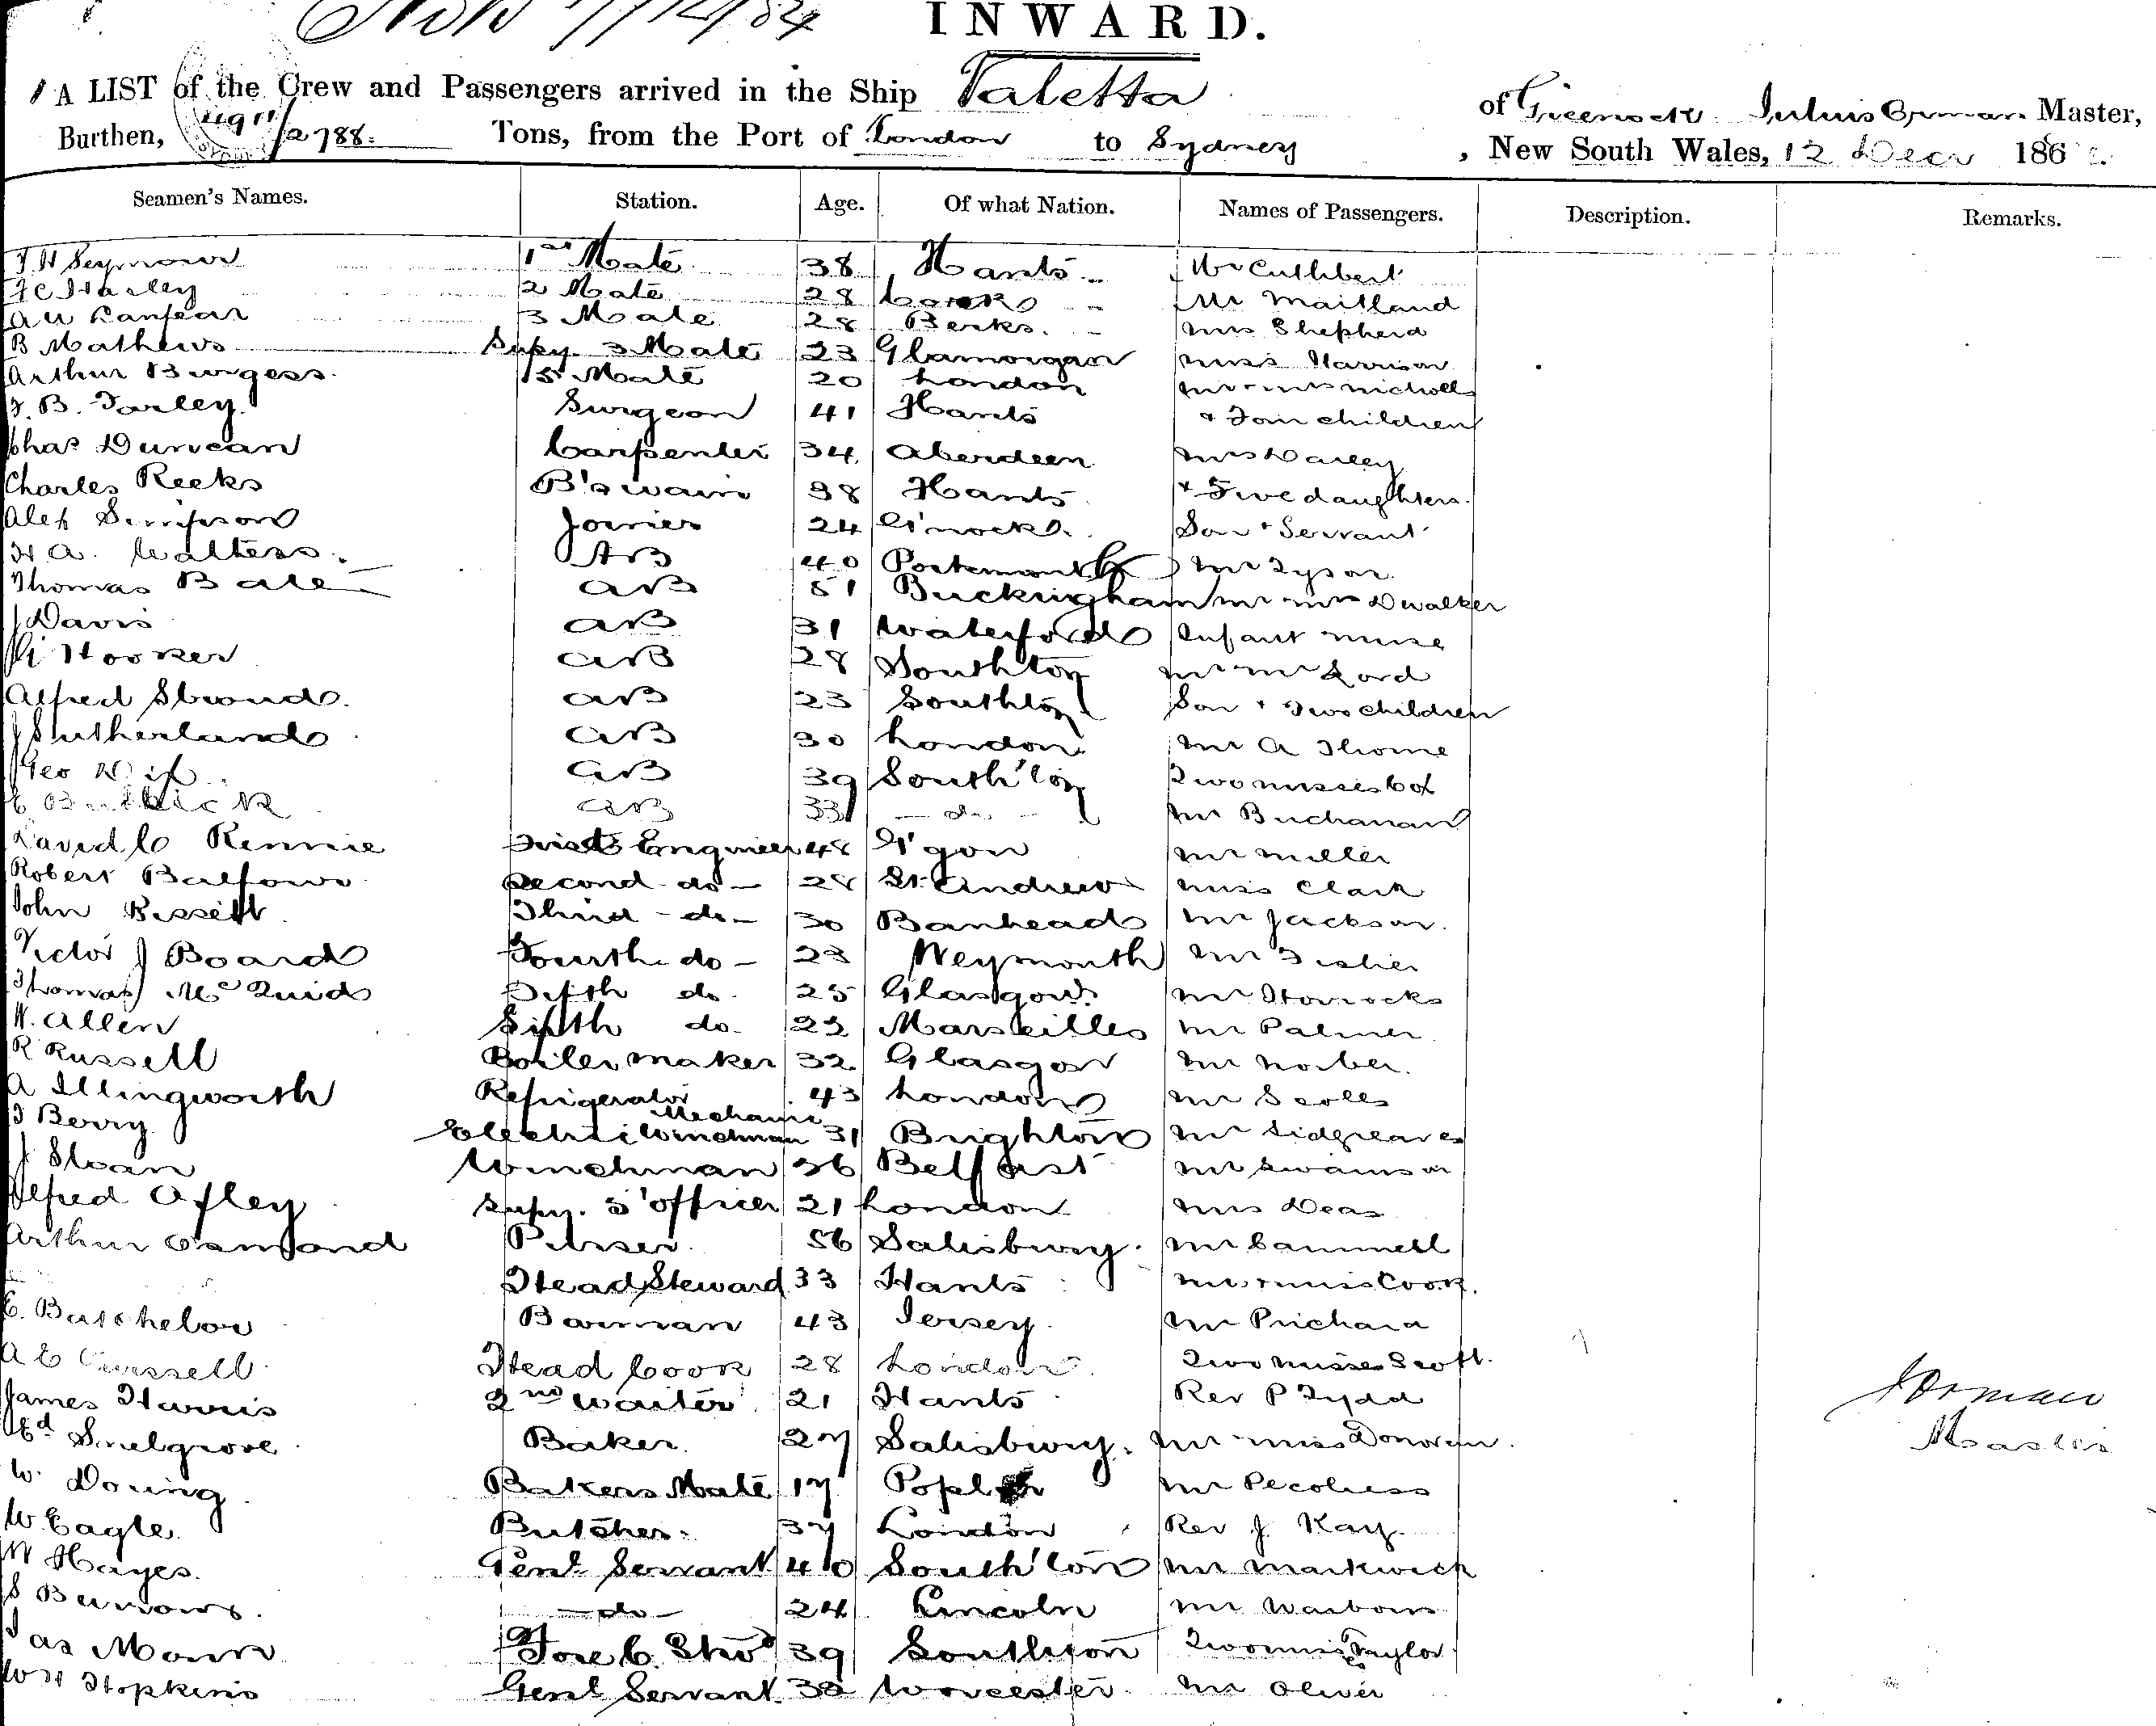 INWARD.
A LIST of the Crew and Passengers arrived in the Ship Valetta of Greenock Master,
Burthen, 2788 Tons, from the Port of London to Sydney, New South Wales, 12 Decr 188
Seamen's Names. Station. Age. Of what Nation. Names of Passengers. Description. Remarks.
Seymour 1st Mate 38 Hants Mr Cuthbert
2 Mate 28 Mr Maitland
3 Mate 28 Berks. Shepherd
B Mathews Supy. 3 Mate 23 Glamorgan Miss Harrison
Arthur Burgess Mate 20 London Nicholls
Surgeon 41 Hants children
Chas Duncan Carpenter 34 Aberdeen Mrs Darley
Charles Reeks B'swain 38 Hants + Five daughters
Alex Simpson Joiner 24 G'nock Son + Servant
H A. Walters AB 40 Portsmouth Mr Tyson
Thomas Bate AB 51 Buckingham D Walker
J Davis AB 31 Waterford Infant nurse
Hooker AB 28 Southton Lord
Alfred Stroud AB 23 Southton Son + Two children
J Sutherland AB 30 London Mr A Thorne
Geo AB 39 South'ton Two misses Cox
AB 33 do Mr Buchanan
David C Rennie First Engineer 48 G'gow Mr Miller
Robert Balfour Second do 28 St Andrews Miss Clark
John Bissett Third do 30 Mr Jackson
Victor J Board Fourth do 23 Weymouth Mr Fisher
Thomas McQuid Fifth do 25 Glasgow Mr Horrocks
W. Allen Sixth do 23 Marseilles Mr Palmer
R Russell Boiler maker 32 Glasgow Mr
A Illingworth Refrigerator 43 London Mr
Mechanic
J Berry Winchman 31 Brighton Mr Sidgreaves
J Sloan Winchman 36 Belfast Mr Swainson
Alfred Ofley Supy. 5 officer 21 London Deas
Arthur Osmond Purser 56 Salisbury Mr Cammell
Head Steward 33 Hants Cook
C. Batchelor Barman 43 Jersey Mr Prichard
Head Cook 28 London Two Misses Scott Orman
James Harris 2nd Waiter 21 Hants Rev P Tydd Master
Snelgrove Baker 27 Salisbury Mr Miss Donovan
W. Doring Bakers Mate 17 Poplar Mr
W Eagle Butcher 37 London Rev J. Kay
W Hayes Genl Servant 40 South'ton Mr Markwick
S Burrows do 24 Lincoln Mr
Jas Mann Fore C. Stwd 39 Southton Two Miss Taylor
W H Hopkins Genl Servant Worcester Mr Oliver